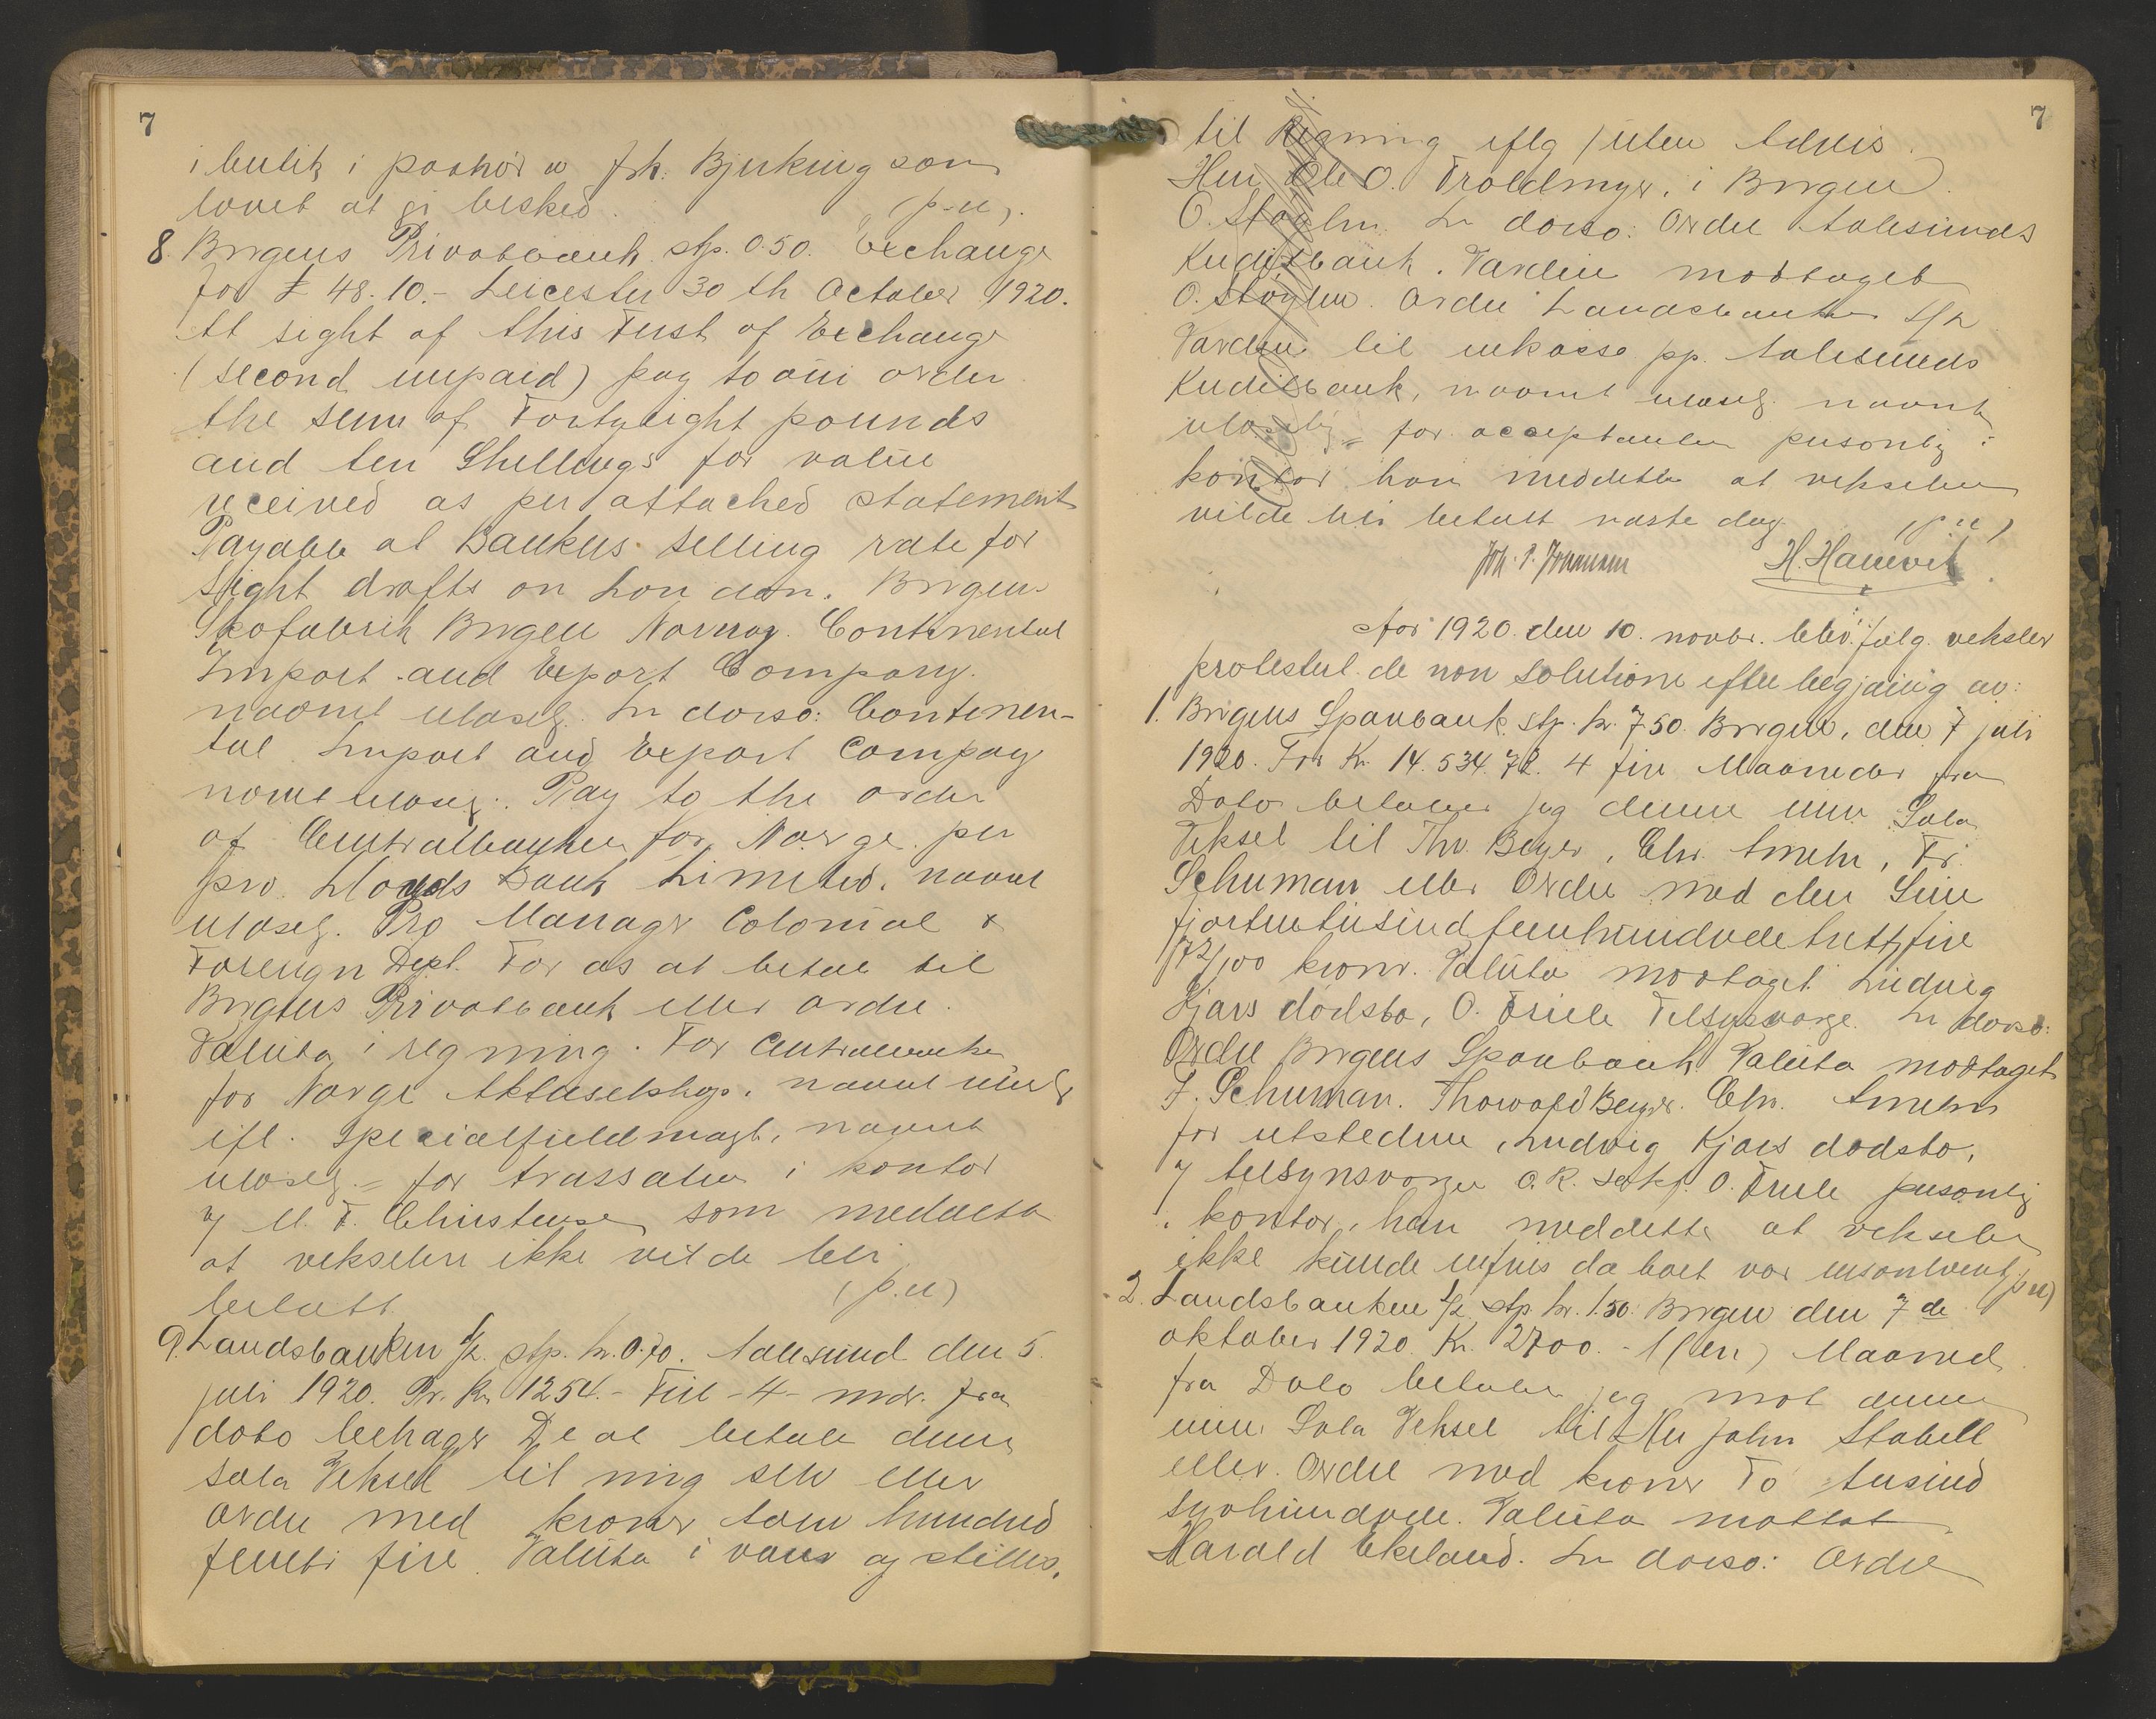 7
i butik i paahør av Joh. Bjerking som
lovet at gi besked. (p.u).
8. Bergens Privatbank stp. 0.50. Exchange
for £ 48.10.- Leicester 30 th October 1920.
At sight of this First of Exchange
(second unpaid) pay to our order
the sum of Fortyeight pounds
and ten Shillings for value
received as per attached statement
Payable at Bankers selling rate for
sight drafts on London. Bergens
Skofabrik Bergen Norway. Continental
Import and Export Company.
navnet ulæselg. In dorso: Continen-
tal Import and Export Company
navnet ulæselg.: Pay to the order
of Centralbanken for Norge per
pro. Lloyds Bank Limited. navnet
ulæselg. Pro Manager Colonial &
Foreign Dept. For os at betale til
Bergens Privatbank eller ordre.
Valuta i regning. For Centralbanken
for Norge Aktieselskap. navnet ulæselg
ifl. specialfuldmagt, navnet
ulæselg. = for trassaten i kontor
av M. F. Christensen som meddelte
at vekselen ikke vilde bli
betalt. (p.u)
9. Landsbanken A/S. stp. kr. 0.70. Aalesund den 5.
juli 1920. Pr. Kr. 1254.- Fire -4- mdr. fra
dato behager De at betale denne
sola Veksel til mig selv eller
ordre med kroner tolv hundred
femti fire. Valuta i varer og stilles
7
til Regning eflg / uten Advis.
Herr Ole O. Troldmyr, i Bergen.
O. Støylen. In dorso: Ordre Aalesunds
Kreditbank. Værdien modtaget
O. Støylen. Ordre Landsbanken A/S
Værdien til inkasso pp. Aalesunds
Kreditbank, navnet ulæselg. navnet
ulæselig = for acceptanten personlig i
kontor han meddelte at vekselen
vilde bli betalt næste dag. (p.u)
Joh. P. Johannesen H. Hanevik
Aar 1920. den 10. novbr. blev følg. veksler
protestert de non solutione efter begjæring av:
1. Bergens Sparebank. stp. kr. 7.50. Bergen, den 7 juli
1920. For Kr. 14.534.72. 4 fire Maaneder fra
Dato betaler jeg denne min Sola
Veksel til Thv. Beyer, Chr. Ameln, Fr.
Schuman eller Ordre med den Sum
fjortentusindfemhundredetrettifire
72/100 kroner. Valuta modtaget Ludvig
Kjærs dødsbo, O. Friele Tilsynsværge. In dorso:
Ordre Bergens Sparebank Valuta modtaget
F. Schuman. Thorvald Beyer. Chr. Ameln
for utstederne, Ludvig Kjærs dødsbo,
v/ tilsynsværge O.R. sakf. O. Friele personlig
i kontor, han meddelte at vekselen
ikke kunde infris da boet var insolvent (p.u)
2. Landsbanken A/S. stp. kr. 1.50. Bergen den 7 de
oktober 1920. Kr. 2700.- 1 (en) Maaned
fra Dato betaler jeg mot denne
min Sola Veksel til Herr John Stabell
eller Ordre med kroner To tusind
syvhundrede. Valuta mottat
Harald Ekeland. In dorso: Ordre